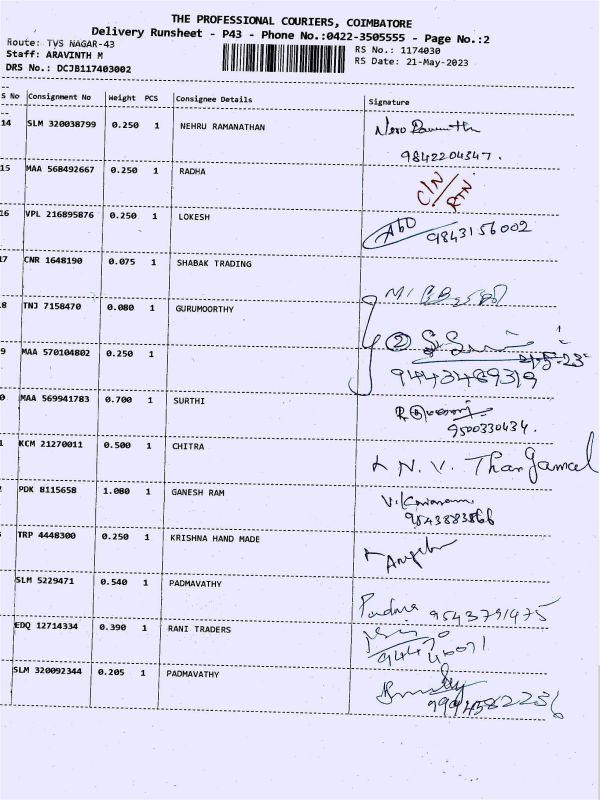 THE PROFESSIONAL COURIERS, COIMBATORE
Delivery Runsheet - P43 - Phone No.:0422-3505555 - Page No.:2
Route: TVS NAGAR-43
Staff: ARAVINTH M
DRS No.: DCJB117403002
RS No.: 1174030
RS Date: 21-May-2023
S No Consignment No Weight PCS Consignee Details Signature
14 SLM 320038799 0.250 1 NEHRU RAMANATHAN
9842204347.
15 MAA 568492667 0.250 1 RADHA C/N/RTN
16 VPL 216895876 0.250 1 LOKESH 9843156002
17 CNR 1648190 0.075 1 SHABAK TRADING
8 TNJ 7158470 0.080 1 GURUMOORTHY
9 MAA 570104802 0.250 1 21-5-23
9443469319
0 MAA 569941783 0.700 1 SURTHI
9500330434.
1 KCM 21270011 0.500 1 CHITRA N. V. Thangamal
PDK 8115658 1.080 1 GANESH RAM
9543883866
TRP 4448300 0.250 1 KRISHNA HAND MADE
SLM 5229471 0.540 1 PADMAVATHY
Padma 9543791475
EDQ 12714334 0.390 1 RANI TRADERS
94470
46071
SLM 320092344 0.205 1 PADMAVATHY
9994582236